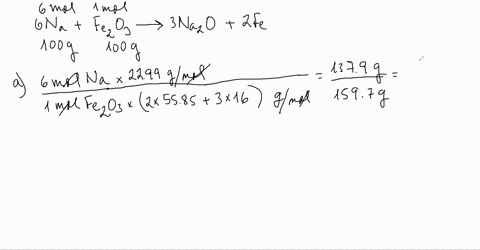 6mol 1mol
6Na + Fe₂O₃ → 3Na₂O + 2Fe
100g 100g
a) 6 mol Na × 2299 g/mol = 137.9 g =
1 mol Fe₂O₃ × (2×55.85 + 3×16) g/mol 159.7 g